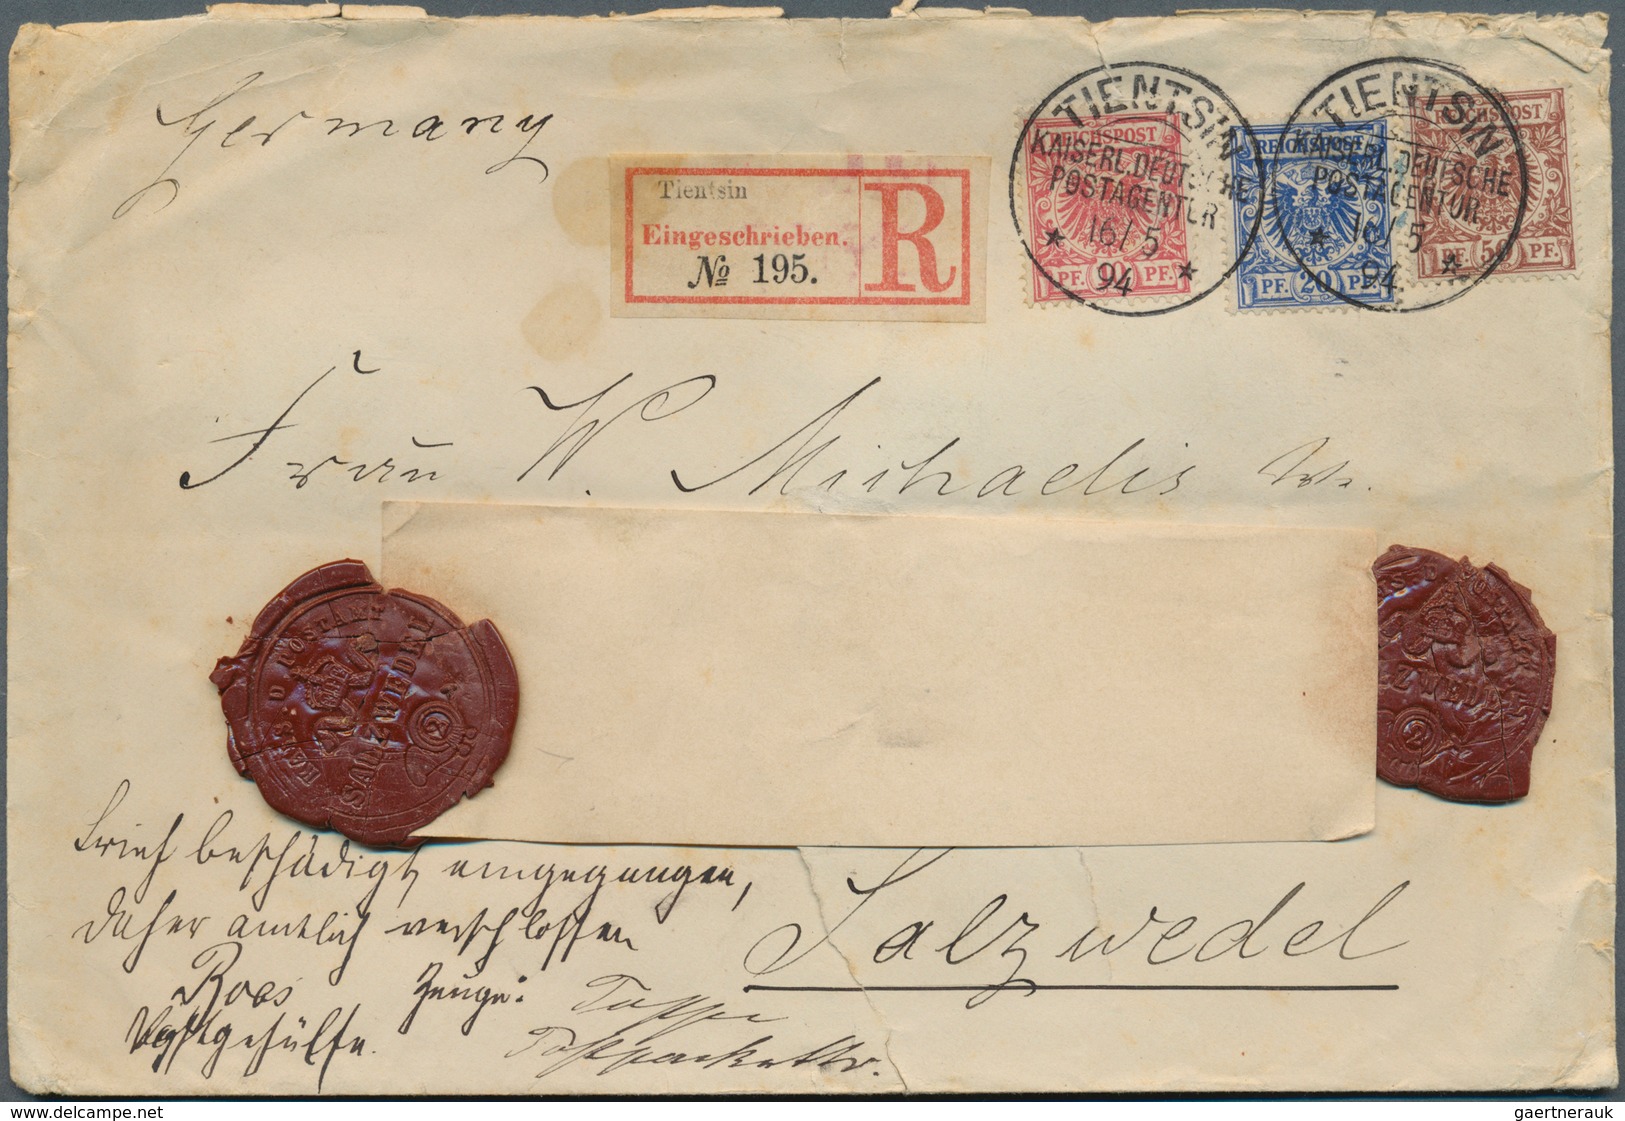 Germany
TIENTSIN
KAISERL.DEUTSCHE
POSTAGENTUR
16/5
94
TIENTSIN
KAISERL.DEUTSCHE
POSTAGENTUR
16/5
94.
REICHSPOST
PF. 10 PF.
REICHSPOST
PF. 20 PF.
REICHSPOST
PF. 50 PF.
Tientsin
Eingeschrieben.
№ 195.
R
Frau W. Michaelis
KAIS. D. POSTAMT
SALZWEDEL
2
Brief beschädigt eingegangen,
daher amtlich verschlossen
Roos Zeuge:
Postgehülfe.
Salzwedel
delcampe.net
gaertnerauk